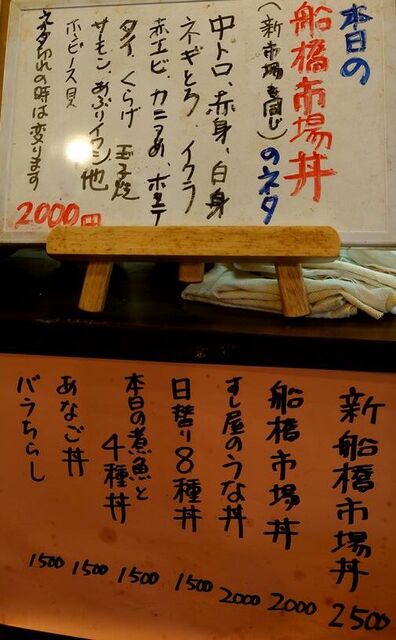 本日の
船橋市場丼
(新市場も同じ)のネタ
中トロ、赤身、白身
ネギとろ、イクラ
赤エビ、カニつめ、ホタテ
タイ、くらげ 玉子焼
サーモン、あぶりイワシ他
ホッピース貝
ネタ切れの時は変ります
2000円
新船橋市場丼 2500
船橋市場丼 2000
すし屋のうな丼 2000
日替り8種丼 1500
本日の煮魚と4種丼 1500
あなご丼 1500
バラちらし 1500